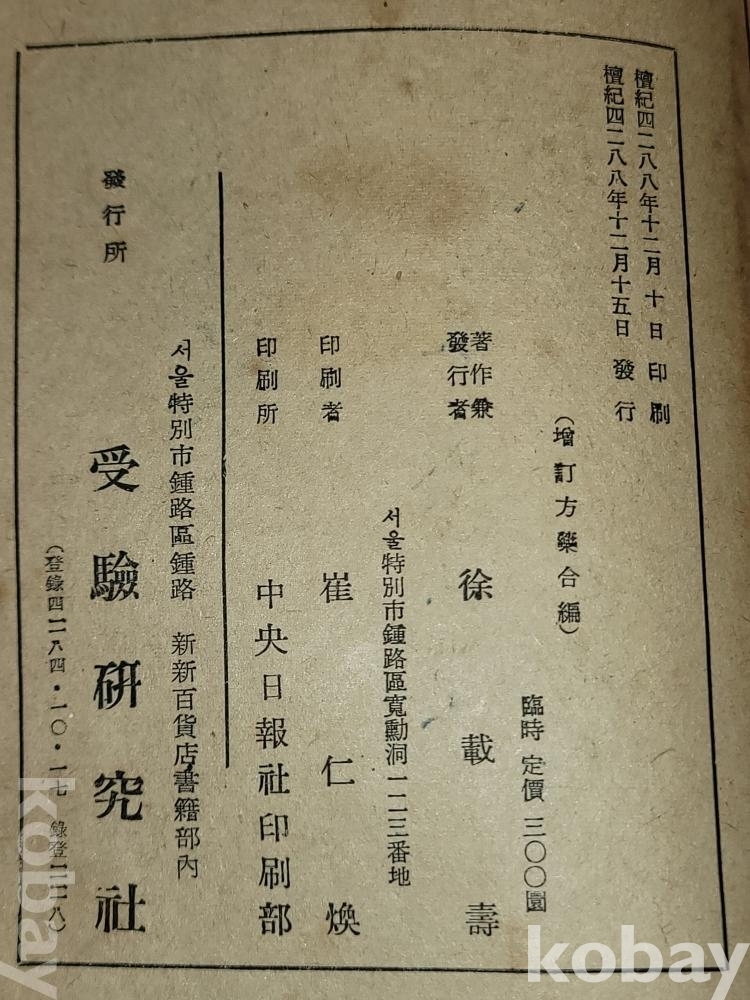 檀紀四二八八年十二月 十 日 印刷
檀紀四二八八年十二月十五日 發行
(增訂方藥合編)
臨時 定價 三〇〇圜
著作兼
發行者
徐載壽
서울特別市鍾路區寬勳洞一二三番地
印刷者 崔仁煥
印刷所 中央日報社印刷部
서울特別市鍾路區鍾路 新新百貨店書籍部內
發行所 受驗硏究社
kobay
kobay